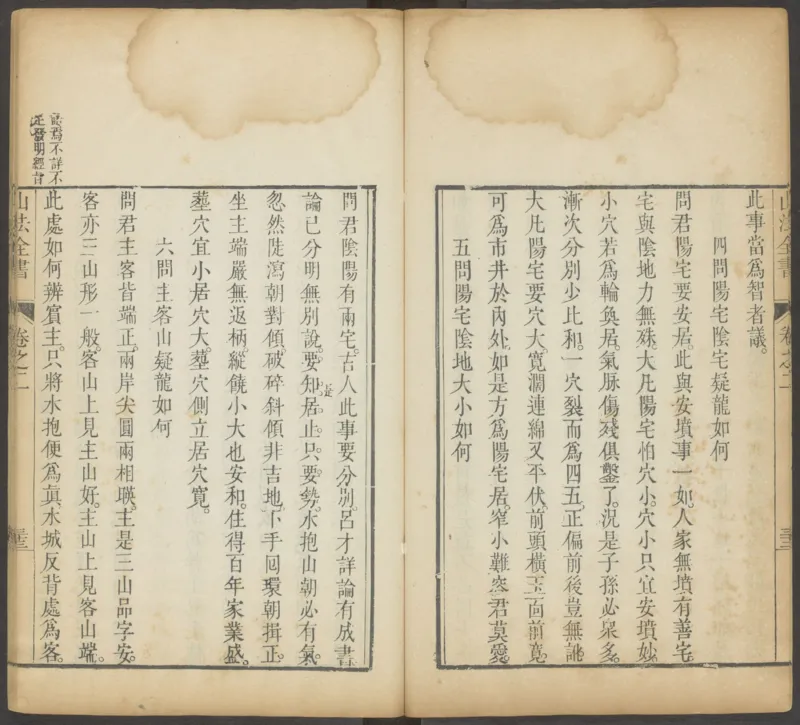 此事當爲智者議。
四問陽宅陰宅疑龍如何
問君陽宅要安居。此與安墳事一如。人家無墳有善宅。
宅與陰地力無殊。大凡陽宅怕穴小。穴小只宜安墳妙。
小穴若爲輪奐居。氣脉傷殘俱鑿了。況是子孫必衆多。
漸次分別少比和。一穴裂而爲四五。正偏前後豈無訛
大凡陽宅要穴大。寬濶連綿又平伏。前頭橫玉面前寬。
可爲市井於內處。如是方爲陽宅居。窄小難容君莫愛。
五問陽宅陰地大小如何
山法全書
卷之二
問君陰陽有兩宅。古人此事要分別。呂才詳論有成書
論已分明無別說。要知居止只要勢。水抱山朝必有氣。
忽然陡瀉朝對傾。破碎斜傾非吉地。下手囘環朝揖正。
坐主端嚴無返柄。縱饒小大也安和。住得百年家業盛。
墓穴宜小居穴大。墓穴側立居穴寬。
六問主客山疑龍如何
問君主客皆端正。兩岸尖圓兩相暎。主是三山品字安。
客亦三山形一般。客山上見主山好。主山上見客山端。
此處如何辨賓主。只將水抱便爲眞。水城反背處爲客。
語焉不詳不
足發明經旨
山法全書
卷之二